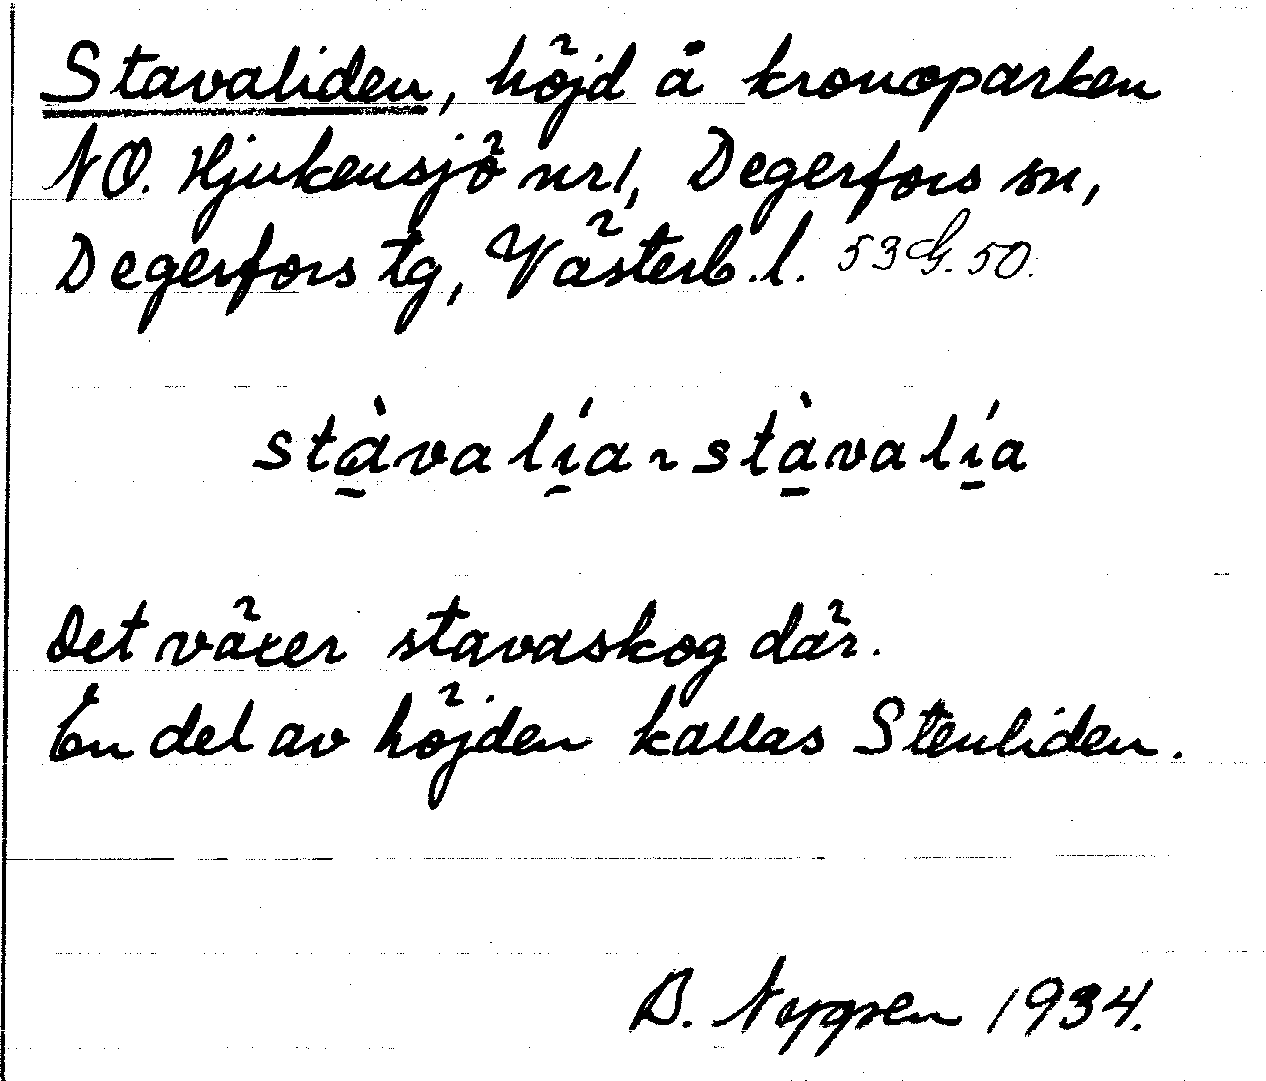 Stavaliden, höjd å kronoparken
NO. Hjukensjö nr 1, Degerfors sn,
Degerfors tg, Västerb. l. 53 G. 50.
stà̱valí̱a ~ stà̱valí̱a
Det växer stavaskog där.
En del av höjden kallas Stenliden.
B. Nygren 1934.